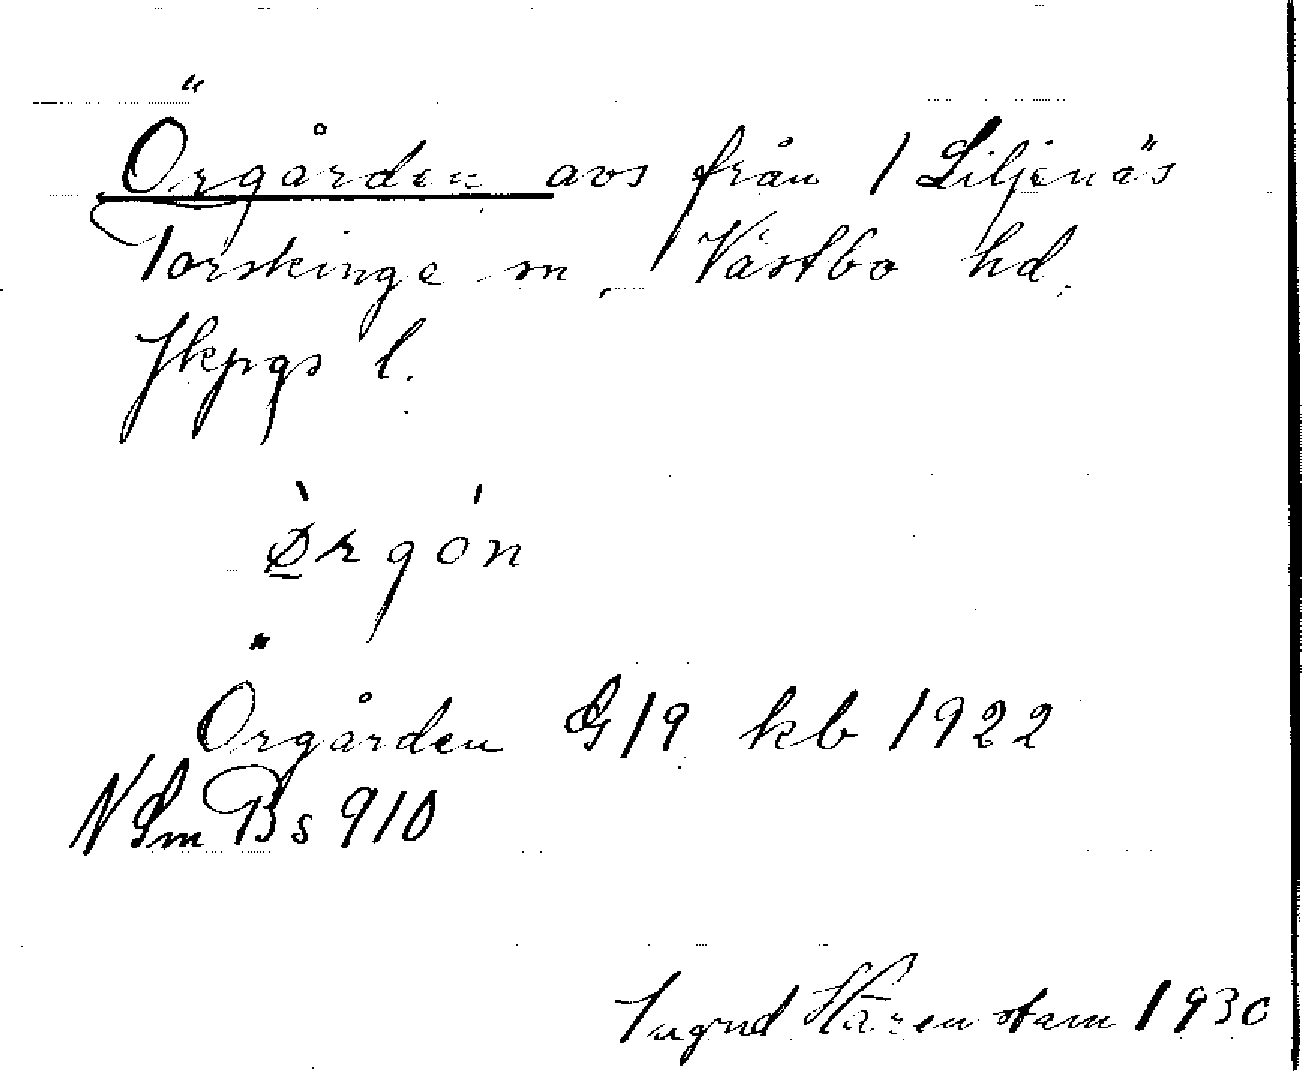 Örgården avs från 1 Liljenäs
Torskinge sn, Västbo hd,
Jkpgs l.
Örgården G19 kb 1922
N Sm Bs 910
Ingrid Härenstam 1930